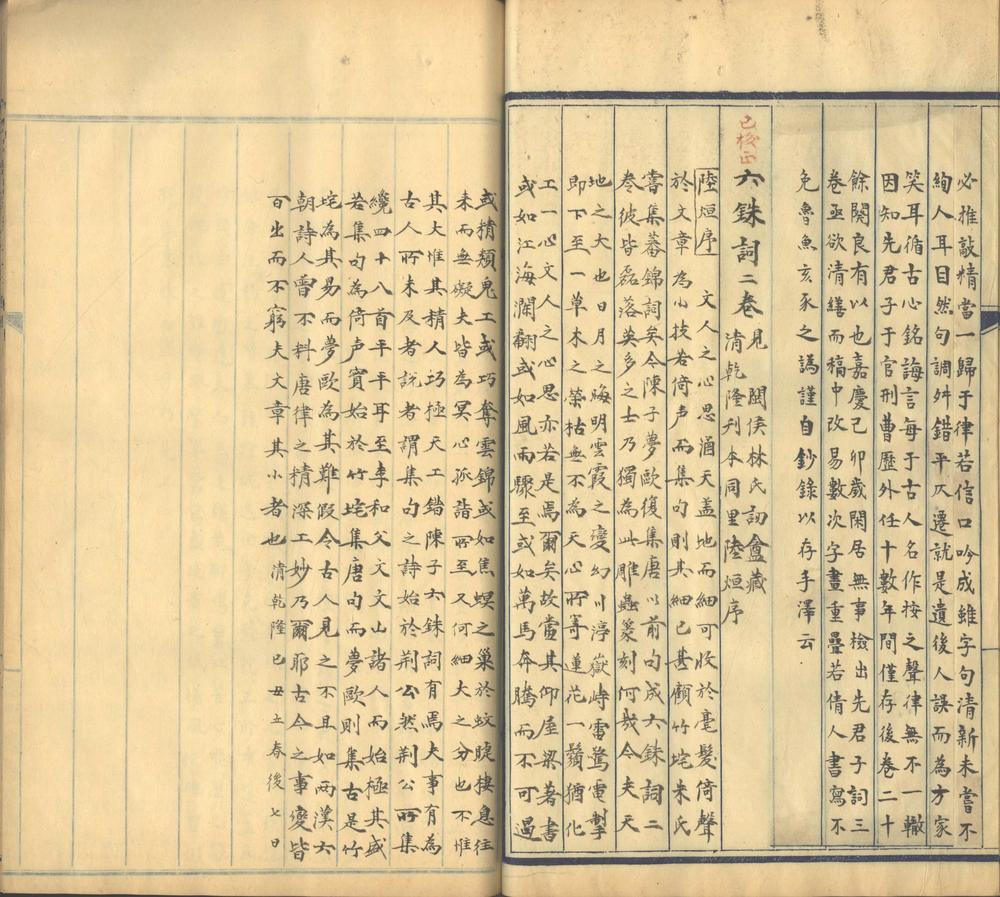 必推敲精當一歸于律若信口吟成雖字句清新未嘗不
絢人耳目然句調舛錯平仄遷就是遺後人誤而為方家
笑耳循古心銘誨言每于古人名作按之聲律無不一轍
因知先君子于官刑曹歷外任十數年間僅存後卷二十
餘闋良有以也嘉慶己卯歲閑居無事檢出先君子詞三
卷亟欲清繕而稿中改易數次字畫重疊若倩人書寫不
免魯魚亥豕之譌謹自鈔錄以存手澤云
已校正
六銖詞二卷
見閩侯林氏訒盦藏
清乾隆刊本同里陸烜序
陸烜序 文人之心思酒天盖地而細可收於毫髮倚聲
於文章為小技若倚声而集句則其細已甚顧竹垞朱氏
嘗集蕃錦詞矣今陳子夢歐復集唐以前句成六銖詞二
卷彼皆磊落英多之士乃獨為此雕蟲篆刻何哉今夫天
地之大也日月之晦明雲霞之變幻川渟嶽峙雷驚電掣
即下至一草木之榮枯無不為天心所等蓮花一鬚猶化
工一心文人之心思亦若是焉爾矣故當其仰屋梁著書
或如江海瀾翻或如風雨驟至或如萬馬奔騰而不可遏
或精頮鬼工或巧奪雲錦或如焦螟之巢於蚊睫棲息往
來而無礙夫皆為冥心孤詣所至又何細大之分也不惟
其大惟其精人巧極天工錯陳子六銖詞有焉夫事有為
古人所未及者說者謂集句之詩始於荆公然荆公所集
纔四十八首平平耳至李和父文文山諸人而始極其盛
若集句為倚声實始於竹垞集唐句而夢歐則集古是竹
垞為其易而夢歐為其難假令古人見之不且如兩漢六
朝詩人曾不料唐律之精深工妙乃爾耶古今之事變皆
百出而不窮夫文章其小者也 清乾隆己丑立春後七日